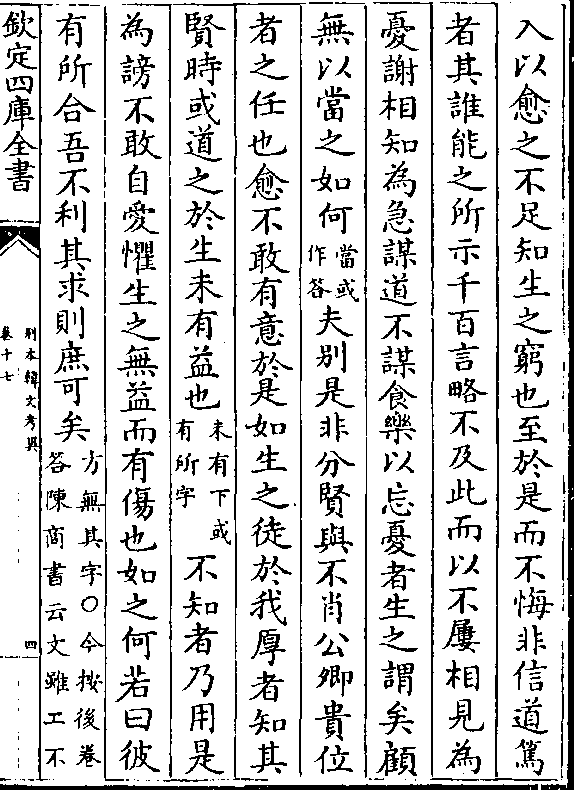 入以愈之不足知生之窮也至於是而不悔非信道篤
者其誰能之所示千百言略不及此而以不屢相見為
憂謝相知為急謀道不謀食樂以忘憂者生之謂矣顧
無以當之如何當或作答夫别是非分賢與不肖公卿貴位
者之任也愈不敢有意於是如生之徒於我厚者知其
賢時或道之於生未有益也未有下或有所字不知者乃用是
為謗不敢自愛懼生之無益而有傷也如之何若曰彼
有所合吾不利其求則庶可矣方無其字○今按後卷答陳商書云文雖工不
欽定四庫全書
别本韓文考異
卷十七
四